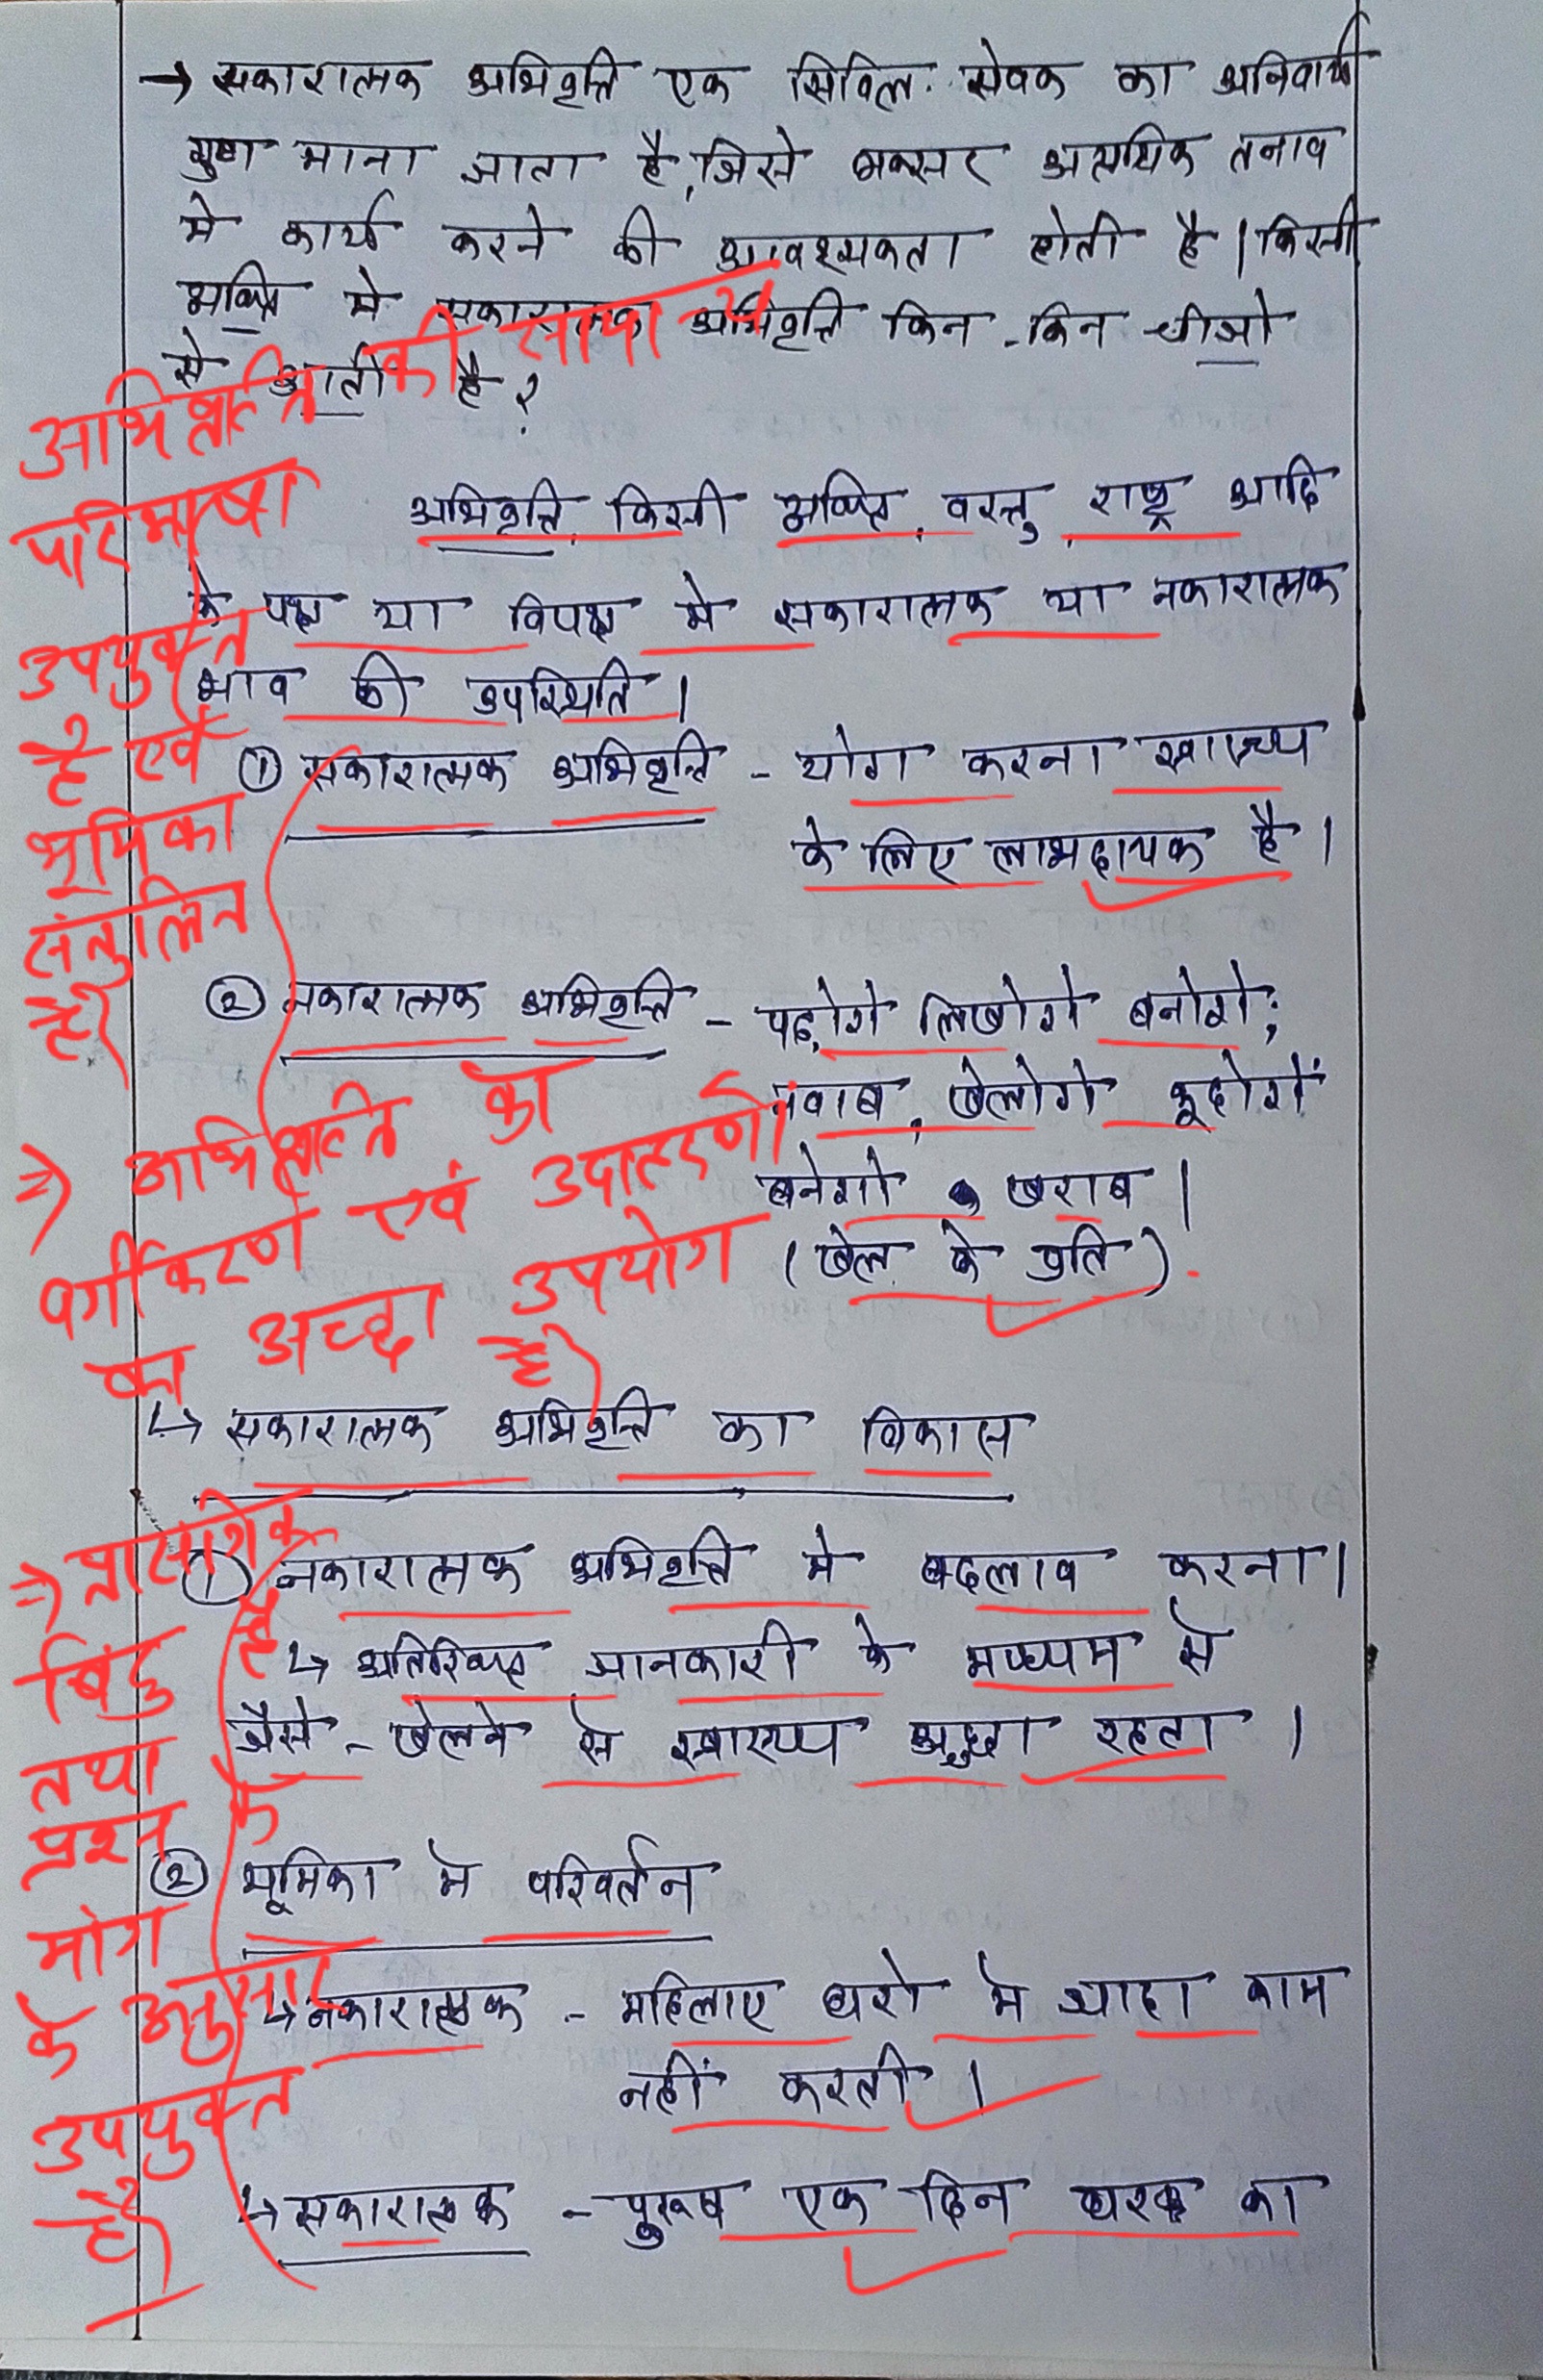 → सकारात्मक अभिवृत्ति एक सिविल सेवक का अनिवार्य
गुण माना जाता है, जिसे अक्सर अत्यधिक तनाव
मे कार्य करने की आवश्यकता होती है। किसी
व्यक्ति मे सकारात्मक अभिवृत्ति किन-किन चीजो
से आती है?
अभिवृत्ति की साथ
परिभाषा
उपयुक्त
है एवं
भूमिका
संतुलित
है।
अभिवृत्ति, किसी व्यक्ति, वस्तु, राष्ट्र आदि
के पक्ष या विपक्ष मे सकारात्मक या नकारात्मक
भाव की उपस्थिति।
① सकारात्मक अभिवृत्ति - योग करना स्वास्थ्य
के लिए लाभदायक है।
② नकारात्मक अभिवृत्ति - पढ़ोगे लिखोगे बनोगे;
नवाब, खेलोगे कूदोगें
बनेगो खराब।
(खेल के प्रति)
⇒ अभिवृत्ति का
वर्गीकरण एवं उदाहरणो
का अच्छा उपयोग
है।
↳ सकारात्मक अभिवृत्ति का विकास
① नकारात्मक अभिवृत्ति मे बदलाव करना।
↳ अतिरिक्त जानकारी के मध्यम से
जैसे - खेलने से स्वास्थ्य अच्छा रहता।
② भूमिका मे परिवर्तन
↳ नकारात्मक - महिलाए घरो मे ज्यादा काम
नहीं करती।
↳ सकारात्मक - पुरूष एक दिन घर का
⇒ प्रासंगिक
बिंदु है
तथा
प्रश्न के
मांग
के अनुसार
उपयुक्त
है।